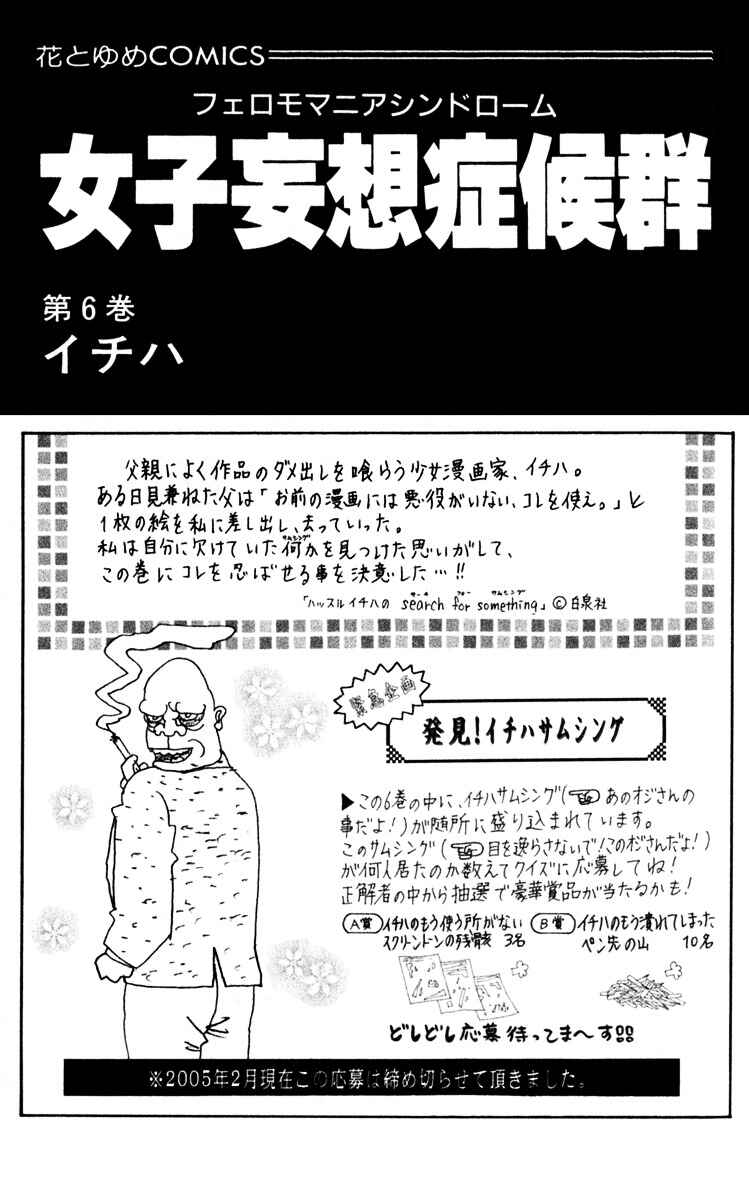 花とゆめCOMICS
フェロモマニアシンドローム
女子妄想症候群
第6巻
イチハ
父親によく作品のダメ出しを喰らう少女漫画家、イチハ。
ある日見兼ねた父は「お前の漫画には悪役がいない、コレを使え。」と
1枚の絵を私に差し出し、去っていった。
私は自分に欠けていた何か(サムシング)を見つけた思いがして、
この巻にコレを忍ばせる事を決意した…!!
「ハッスルイチハの search for something」©白泉社
緊急企画
発見!イチハサムシング
▶この6巻の中に、イチハサムシング(☜あのオジさんの
事だよ!)が随所に盛り込まれています。
このサムシング(☜目を逸らさないで!このオジさんだよ!)
が何人居たのか数えてクイズに応募してね!
正解者の中から抽選で豪華賞品が当たるかも!
A賞 イチハのもう使う所がない
スクリーントーンの残骸 3名
B賞 イチハのもう潰れてしまった
ペン先の山 10名
どしどし応募待ってま〜す!!
※2005年2月現在この応募は締め切らせて頂きました。